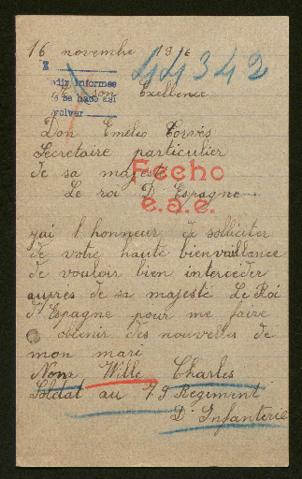 16 novembre 191
44342
Pedir informes
volver
son Exellence
Don Emilio Torrés
Secretaire particulier
de sa majesté
Le roi D'Espagne
Fecho
e.a.e.
j'ai l'honneur de solliciter
de votre haute bienveillance
de vouloir bien interceder
aupres de sa majesté Le Roi
d'Espagne pour me faire
obtenir des nouvelles de
mon mari
Nom Wille Charles
Soldat au 79 Regiment
D'Infanterie